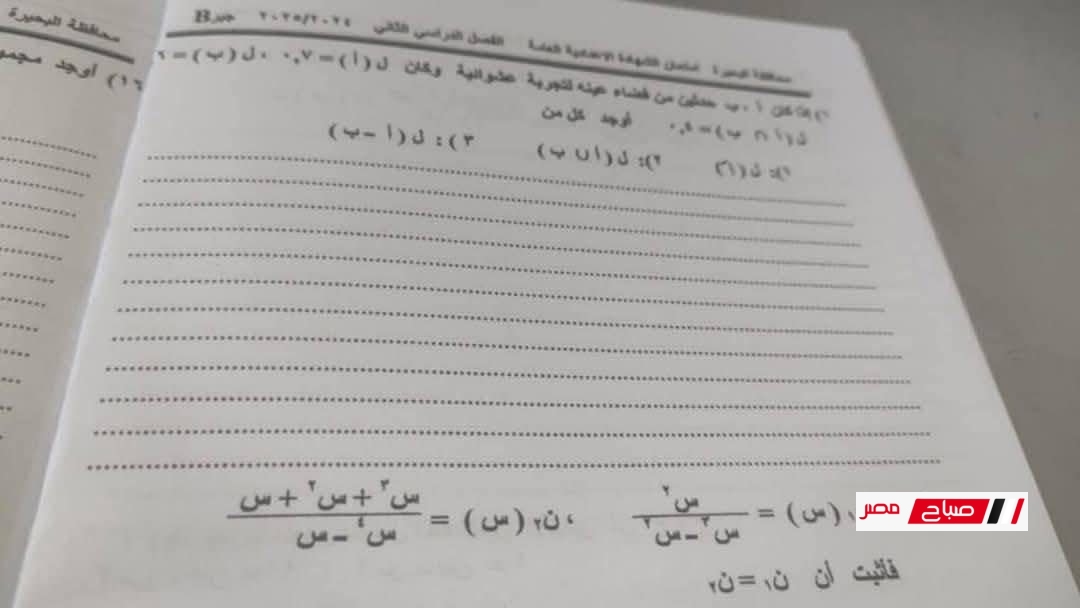 محافظة البحيرة
محافظة البحيرة امتحان الشهادة الاعدادية العامة الفصل الدراسي الثاني ٢٠٢٥/٢٠٢٤ جبر B
أوجد مجمو
كان أ ، ب حدثين من فضاء عينه لتجربة عشوائية وكان ل(أ) = ٠,٧ ، ل(ب) =
ل(أ ∩ ب) = ٠,٤ أوجد كل من
١): ل(أَ) ٢): ل(أ ∪ ب) ٣): ل(أ – ب)
(س) = س^٢ / (س^٣ – س^٢) ، ن٢(س) = (س^٣ + س^٢ + س) / (س^٤ – س)
فأثبت أن ن١ = ن٢
صباح مصر